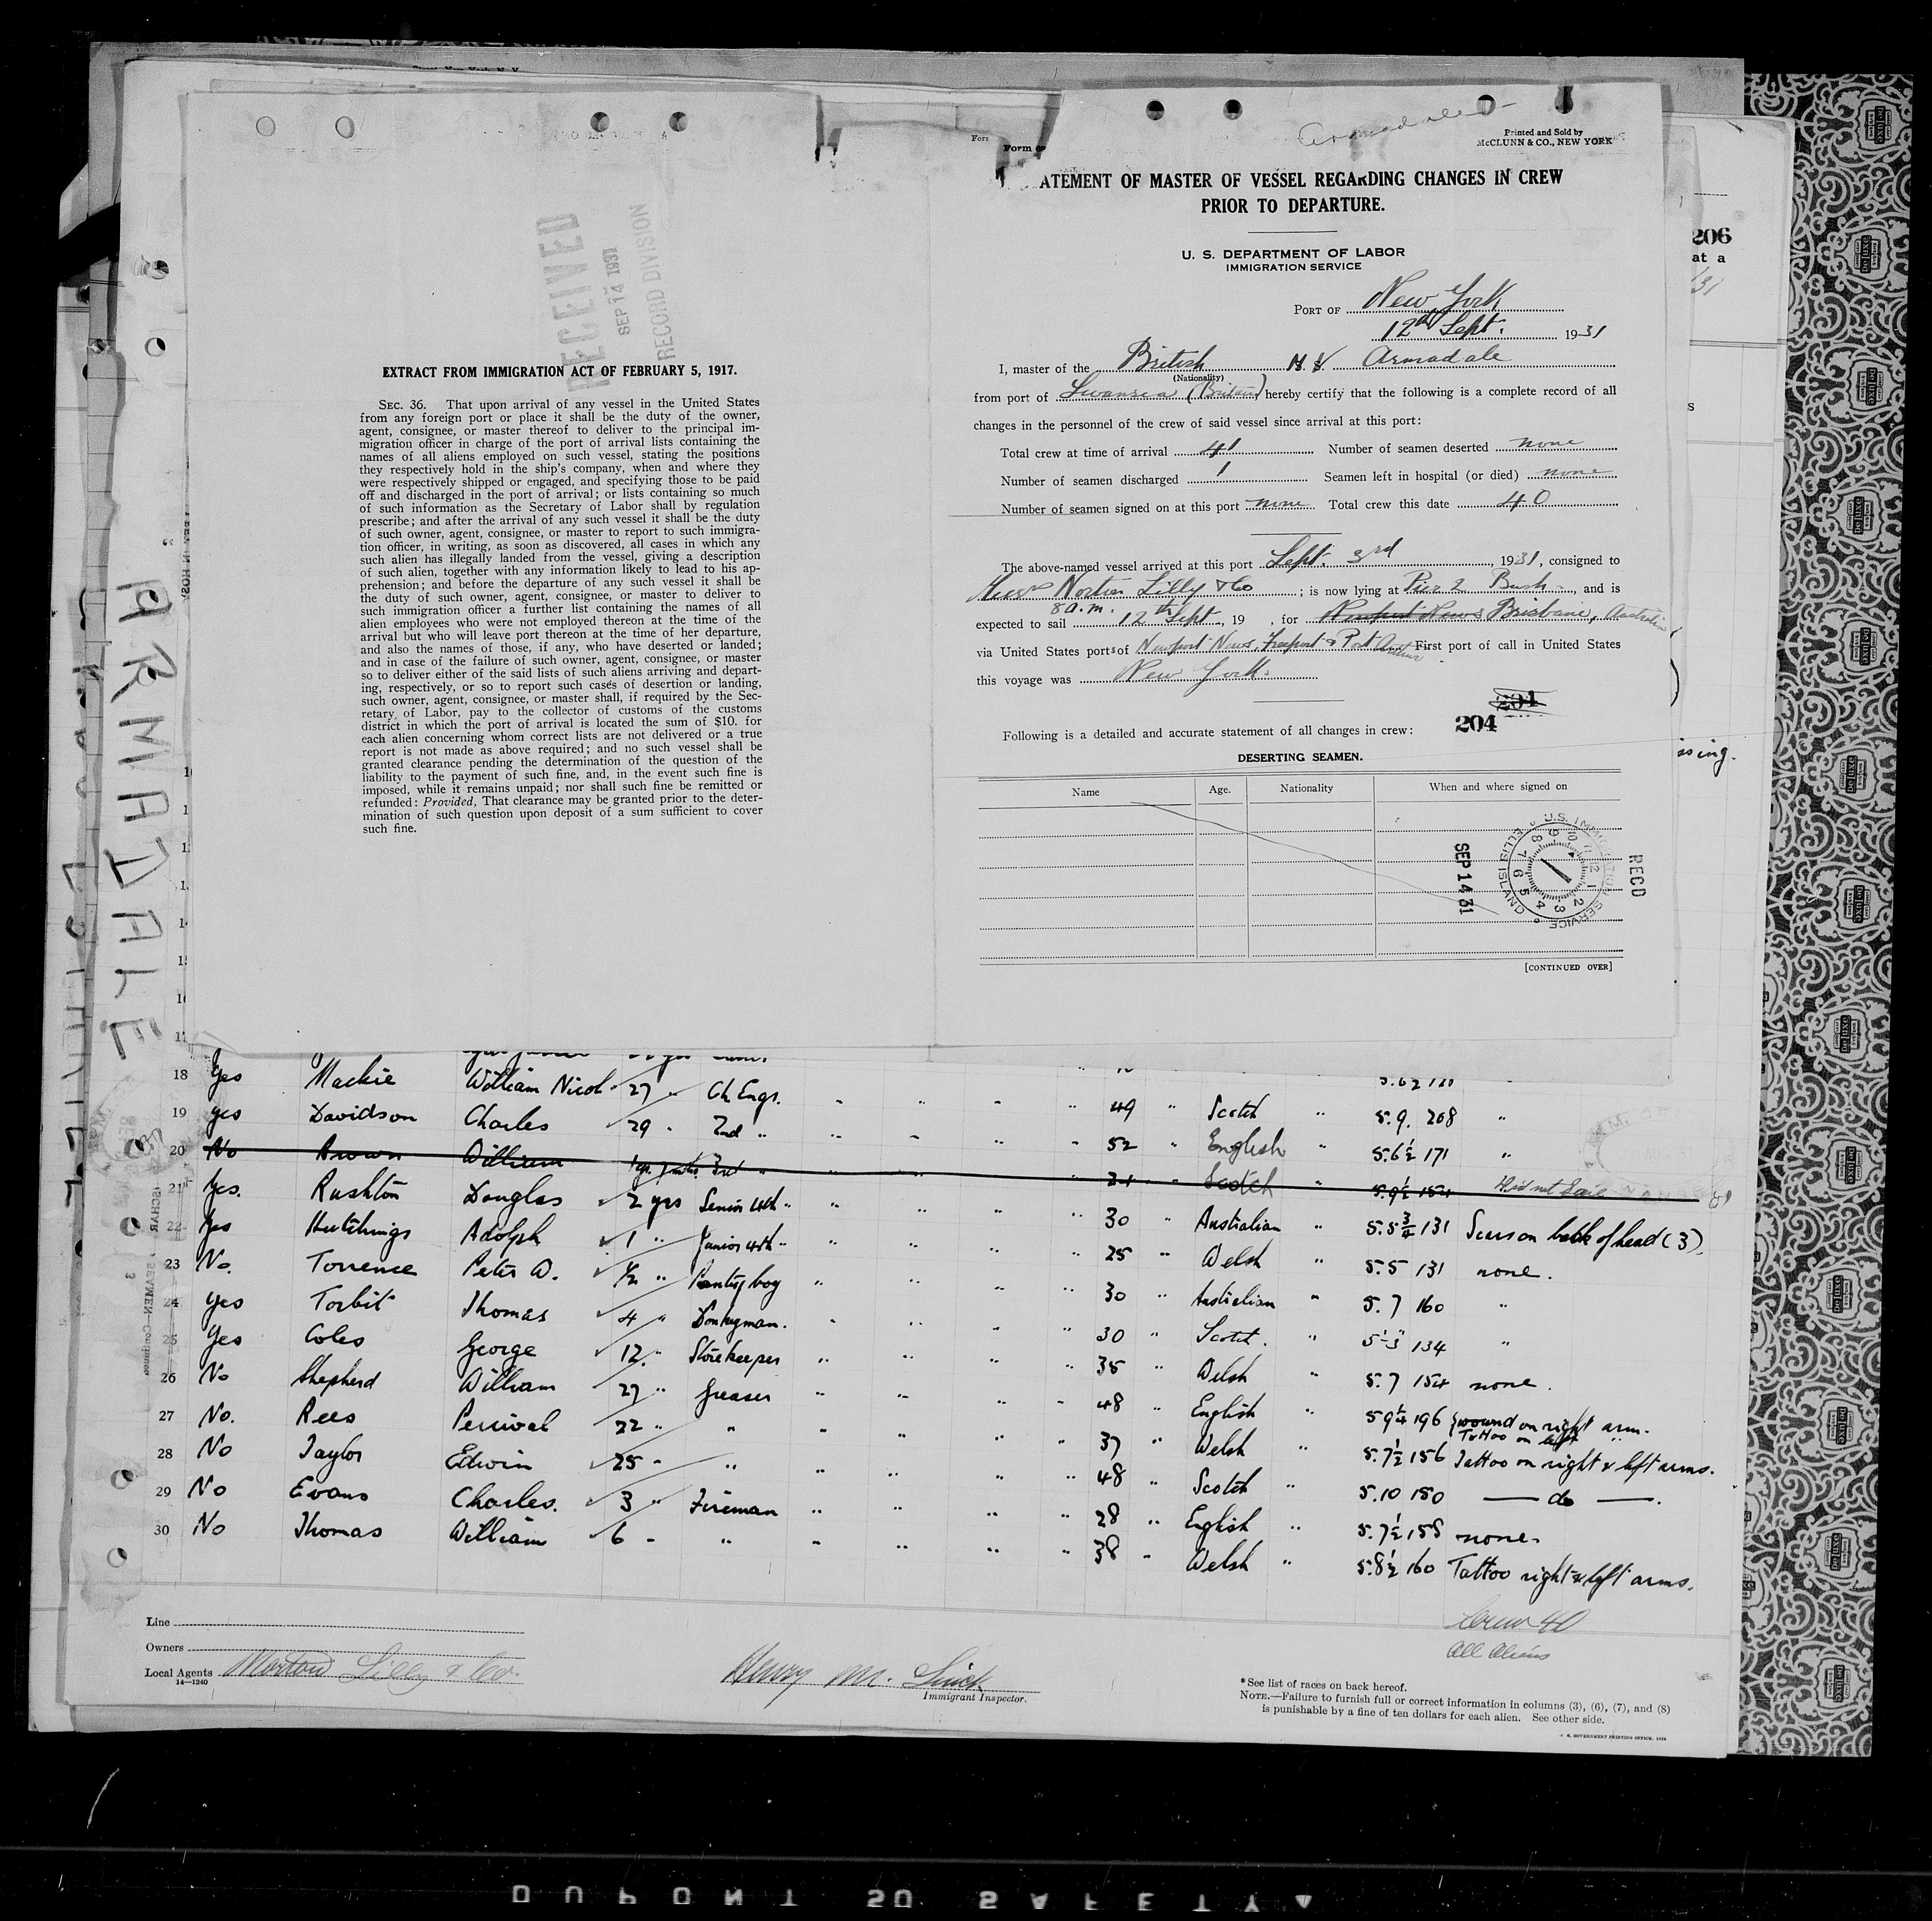 RECEIVED
SEP 14 1931
RECORD DIVISION
EXTRACT FROM IMMIGRATION ACT OF FEBRUARY 5, 1917.
SEC. 36. That upon arrival of any vessel in the United States
from any foreign port or place it shall be the duty of the owner,
agent, consignee, or master thereof to deliver to the principal im-
migration officer in charge of the port of arrival lists containing the
names of all aliens employed on such vessel, stating the positions
they respectively hold in the ship's company, when and where they
were respectively shipped or engaged, and specifying those to be paid
off and discharged in the port of arrival; or lists containing so much
of such information as the Secretary of Labor shall by regulation
prescribe; and after the arrival of any such vessel it shall be the duty
of such owner, agent, consignee, or master to report to such immigra-
tion officer, in writing, as soon as discovered, all cases in which any
such alien has illegally landed from the vessel, giving a description
of such alien, together with any information likely to lead to his ap-
prehension; and before the departure of any such vessel it shall be
the duty of such owner, agent, consignee, or master to deliver to
such immigration officer a further list containing the names of all
alien employees who were not employed thereon at the time of the
arrival but who will leave port thereon at the time of her departure,
and also the names of those, if any, who have deserted or landed;
and in case of the failure of such owner, agent, consignee, or master
so to deliver either of the said lists of such aliens arriving and depart-
ing, respectively, or so to report such cases of desertion or landing,
such owner, agent, consignee, or master shall, if required by the Sec-
retary of Labor, pay to the collector of customs of the customs
district in which the port of arrival is located the sum of $10. for
each alien concerning whom correct lists are not delivered or a true
report is not made as above required; and no such vessel shall be
granted clearance pending the determination of the question of the
liability to the payment of such fine, and, in the event such fine is
imposed, while it remains unpaid; nor shall such fine be remitted or
refunded: Provided, That clearance may be granted prior to the deter-
mination of such question upon deposit of a sum sufficient to cover
such fine.
Armadale
Form
Printed and Sold by
McCLUNN & CO., NEW YORK
ATEMENT OF MASTER OF VESSEL REGARDING CHANGES IN CREW
PRIOR TO DEPARTURE.
U. S. DEPARTMENT OF LABOR
IMMIGRATION SERVICE
PORT OF New York
12th Sept. 1931
I, master of the British M.V. Armadale
(Nationality)
from port of Swansea (Britain) hereby certify that the following is a complete record of all
changes in the personnel of the crew of said vessel since arrival at this port:
Total crew at time of arrival 41 Number of seamen deserted none
Number of seamen discharged 1 Seamen left in hospital (or died) none
Number of seamen signed on at this port none Total crew this date 40
The above-named vessel arrived at this port Sept. 3rd, 1931, consigned to
Messrs Norton Lilly & Co; is now lying at Pier 2 Bush, and is
expected to sail 8 a.m. 12th Sept, 19 , for Newport News Brisbane, Australia
via United States ports of Newport News, Freeport & Port Arthur First port of call in United States
this voyage was New York.
204
204
Following is a detailed and accurate statement of all changes in crew:
DESERTING SEAMEN.
Name Age. Nationality When and where signed on
U.S. IMMIGRATION SERVICE ELLIS ISLAND
SEP 14 31
RECD
[CONTINUED OVER]
206
at a
ssing.
ARMADALE
18 Yes Mackie William Nicol 27 " Ch Engr. " " " " 49 " Scotch " 5.9. 208 "
19 yes Davidson Charles 29 " 2nd " " " " " 52 " English " 5.6½ 171 "
20 No Brown William 1 yr. 3rd " " " " " Scotch " 5.9½ 154 Did not Sail
21 Yes. Rushton Douglas 2 yrs Senior 4th " " " " " 30 " Australian " 5.5¾ 131 Scars on back of head (3).
22 Yes Hutchings Adolph 1 " Junior 4th " " " " " 25 " Welsh " 5.5 131 none.
23 No. Torrence Peter W. ½ " Pantry boy " " " " 30 " Australian " 5.7 160 "
24 Yes Torbit Thomas 4 " Donkeyman. " " " " 30 " Scotch. " 5'-3" 134 "
25 Yes Coles George 12 " Storekeeper " " " " 35 " Welsh " 5.7 154 none.
26 No Shepherd William 27 " Greaser " " " " 48 " English " 5 9¼ 196 wound on right arm.
Tattoo on left "
27 No. Rees Percival 22 " " " " " " 37 " Welsh " 5.7½ 156 Tattoo on right & left arms.
28 No Taylor Edwin 25 " " " " " " 48 " Scotch " 5.10 180 — do —.
29 No Evans Charles. 3 " Fireman " " " " 28 " English " 5.7½ 158 none.
30 No Thomas William 6 " " " " " " 38 " Welsh " 5.8½ 160 Tattoo right & left arms.
Crew 40
All Aliens
Line
Owners
Local Agents Norton Lilly & Co.
14—1240
Henry M.
Immigrant Inspector.
* See list of races on back hereof.
NOTE.—Failure to furnish full or correct information in columns (3), (6), (7), and (8)
is punishable by a fine of ten dollars for each alien. See other side.
U. S. GOVERNMENT PRINTING OFFICE, 1929
DUPONT SO SAFETY